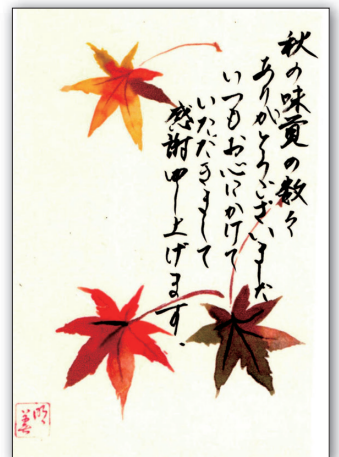 秋の味覚の数々
ありがとうございました
いつもお心にかけて
いただきまして
感謝申し上げます。